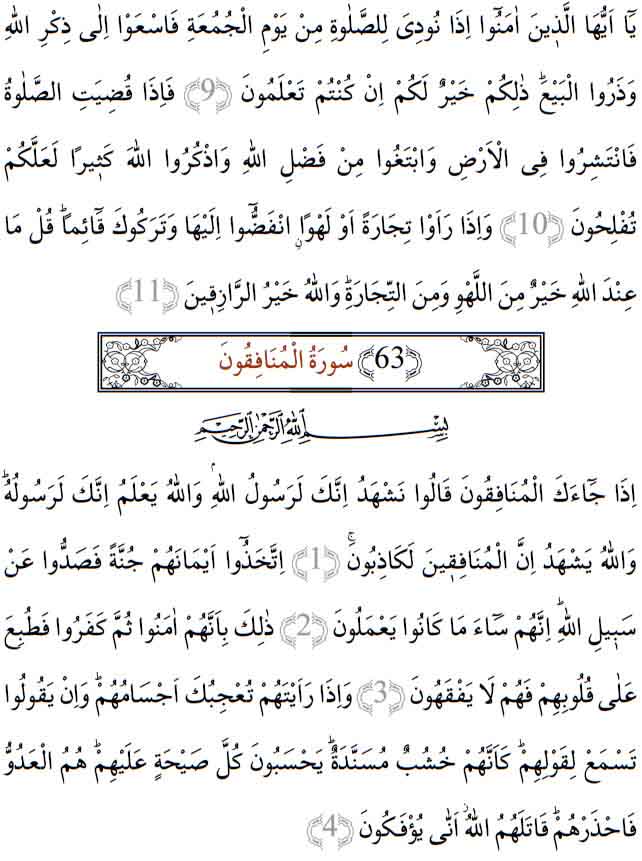 يَٓا اَيُّهَا الَّذ۪ينَ اٰمَنُٓوا اِذَا نُودِىَ لِلصَّلٰوةِ مِنْ يَوْمِ الْجُمُعَةِ فَاسْعَوْا اِلٰى ذِكْرِ اللهِ
وَذَرُوا الْبَيْعَۜ ذٰلِكُمْ خَيْرٌ لَكُمْ اِنْ كُنْتُمْ تَعْلَمُونَ ﴿9﴾ فَاِذَا قُضِيَتِ الصَّلٰوةُ
فَانْتَشِرُوا فِى الْاَرْضِ وَابْتَغُوا مِنْ فَضْلِ اللهِ وَاذْكُرُوا اللهَ كَث۪يرًا لَعَلَّكُمْ
تُفْلِحُونَ ﴿10﴾ وَاِذَا رَاَوْا تِجَارَةً اَوْ لَهْوًاۨ انْفَضُّٓوا اِلَيْهَا وَتَرَكُوكَ قَٓائِمًاۜ قُلْ مَا
عِنْدَ اللهِ خَيْرٌ مِنَ اللَّهْوِ وَمِنَ التِّجَارَةِۜ وَاللهُ خَيْرُ الرَّازِق۪ينَ ﴿11﴾
﴿63﴾ سُورَةُ الْمُنَافِقُونَ
بِسْمِ اللهِ الرَّحْمٰنِ الرَّحِيمِ
اِذَا جَٓاءَكَ الْمُنَافِقُونَ قَالُوا نَشْهَدُ اِنَّكَ لَرَسُولُ اللهِۢ وَاللهُ يَعْلَمُ اِنَّكَ لَرَسُولُهُۜ
وَاللهُ يَشْهَدُ اِنَّ الْمُنَافِق۪ينَ لَكَاذِبُونَۚ ﴿1﴾ اِتَّخَذُٓوا اَيْمَانَهُمْ جُنَّةً فَصَدُّوا عَنْ
سَب۪يلِ اللهِۜ اِنَّهُمْ سَٓاءَ مَا كَانُوا يَعْمَلُونَ ﴿2﴾ ذٰلِكَ بِاَنَّهُمْ اٰمَنُوا ثُمَّ كَفَرُوا فَطُبِعَ
عَلٰى قُلُوبِهِمْ فَهُمْ لَا يَفْقَهُونَ ﴿3﴾ وَاِذَا رَاَيْتَهُمْ تُعْجِبُكَ اَجْسَامُهُمْۜ وَاِنْ يَقُولُوا
تَسْمَعْ لِقَوْلِهِمْۜ كَاَنَّهُمْ خُشُبٌ مُسَنَّدَةٌۜ يَحْسَبُونَ كُلَّ صَيْحَةٍ عَلَيْهِمْۜ هُمُ الْعَدُوُّ
فَاحْذَرْهُمْۜ قَاتَلَهُمُ اللهُۘ اَنّٰى يُؤْفَكُونَ ﴿4﴾